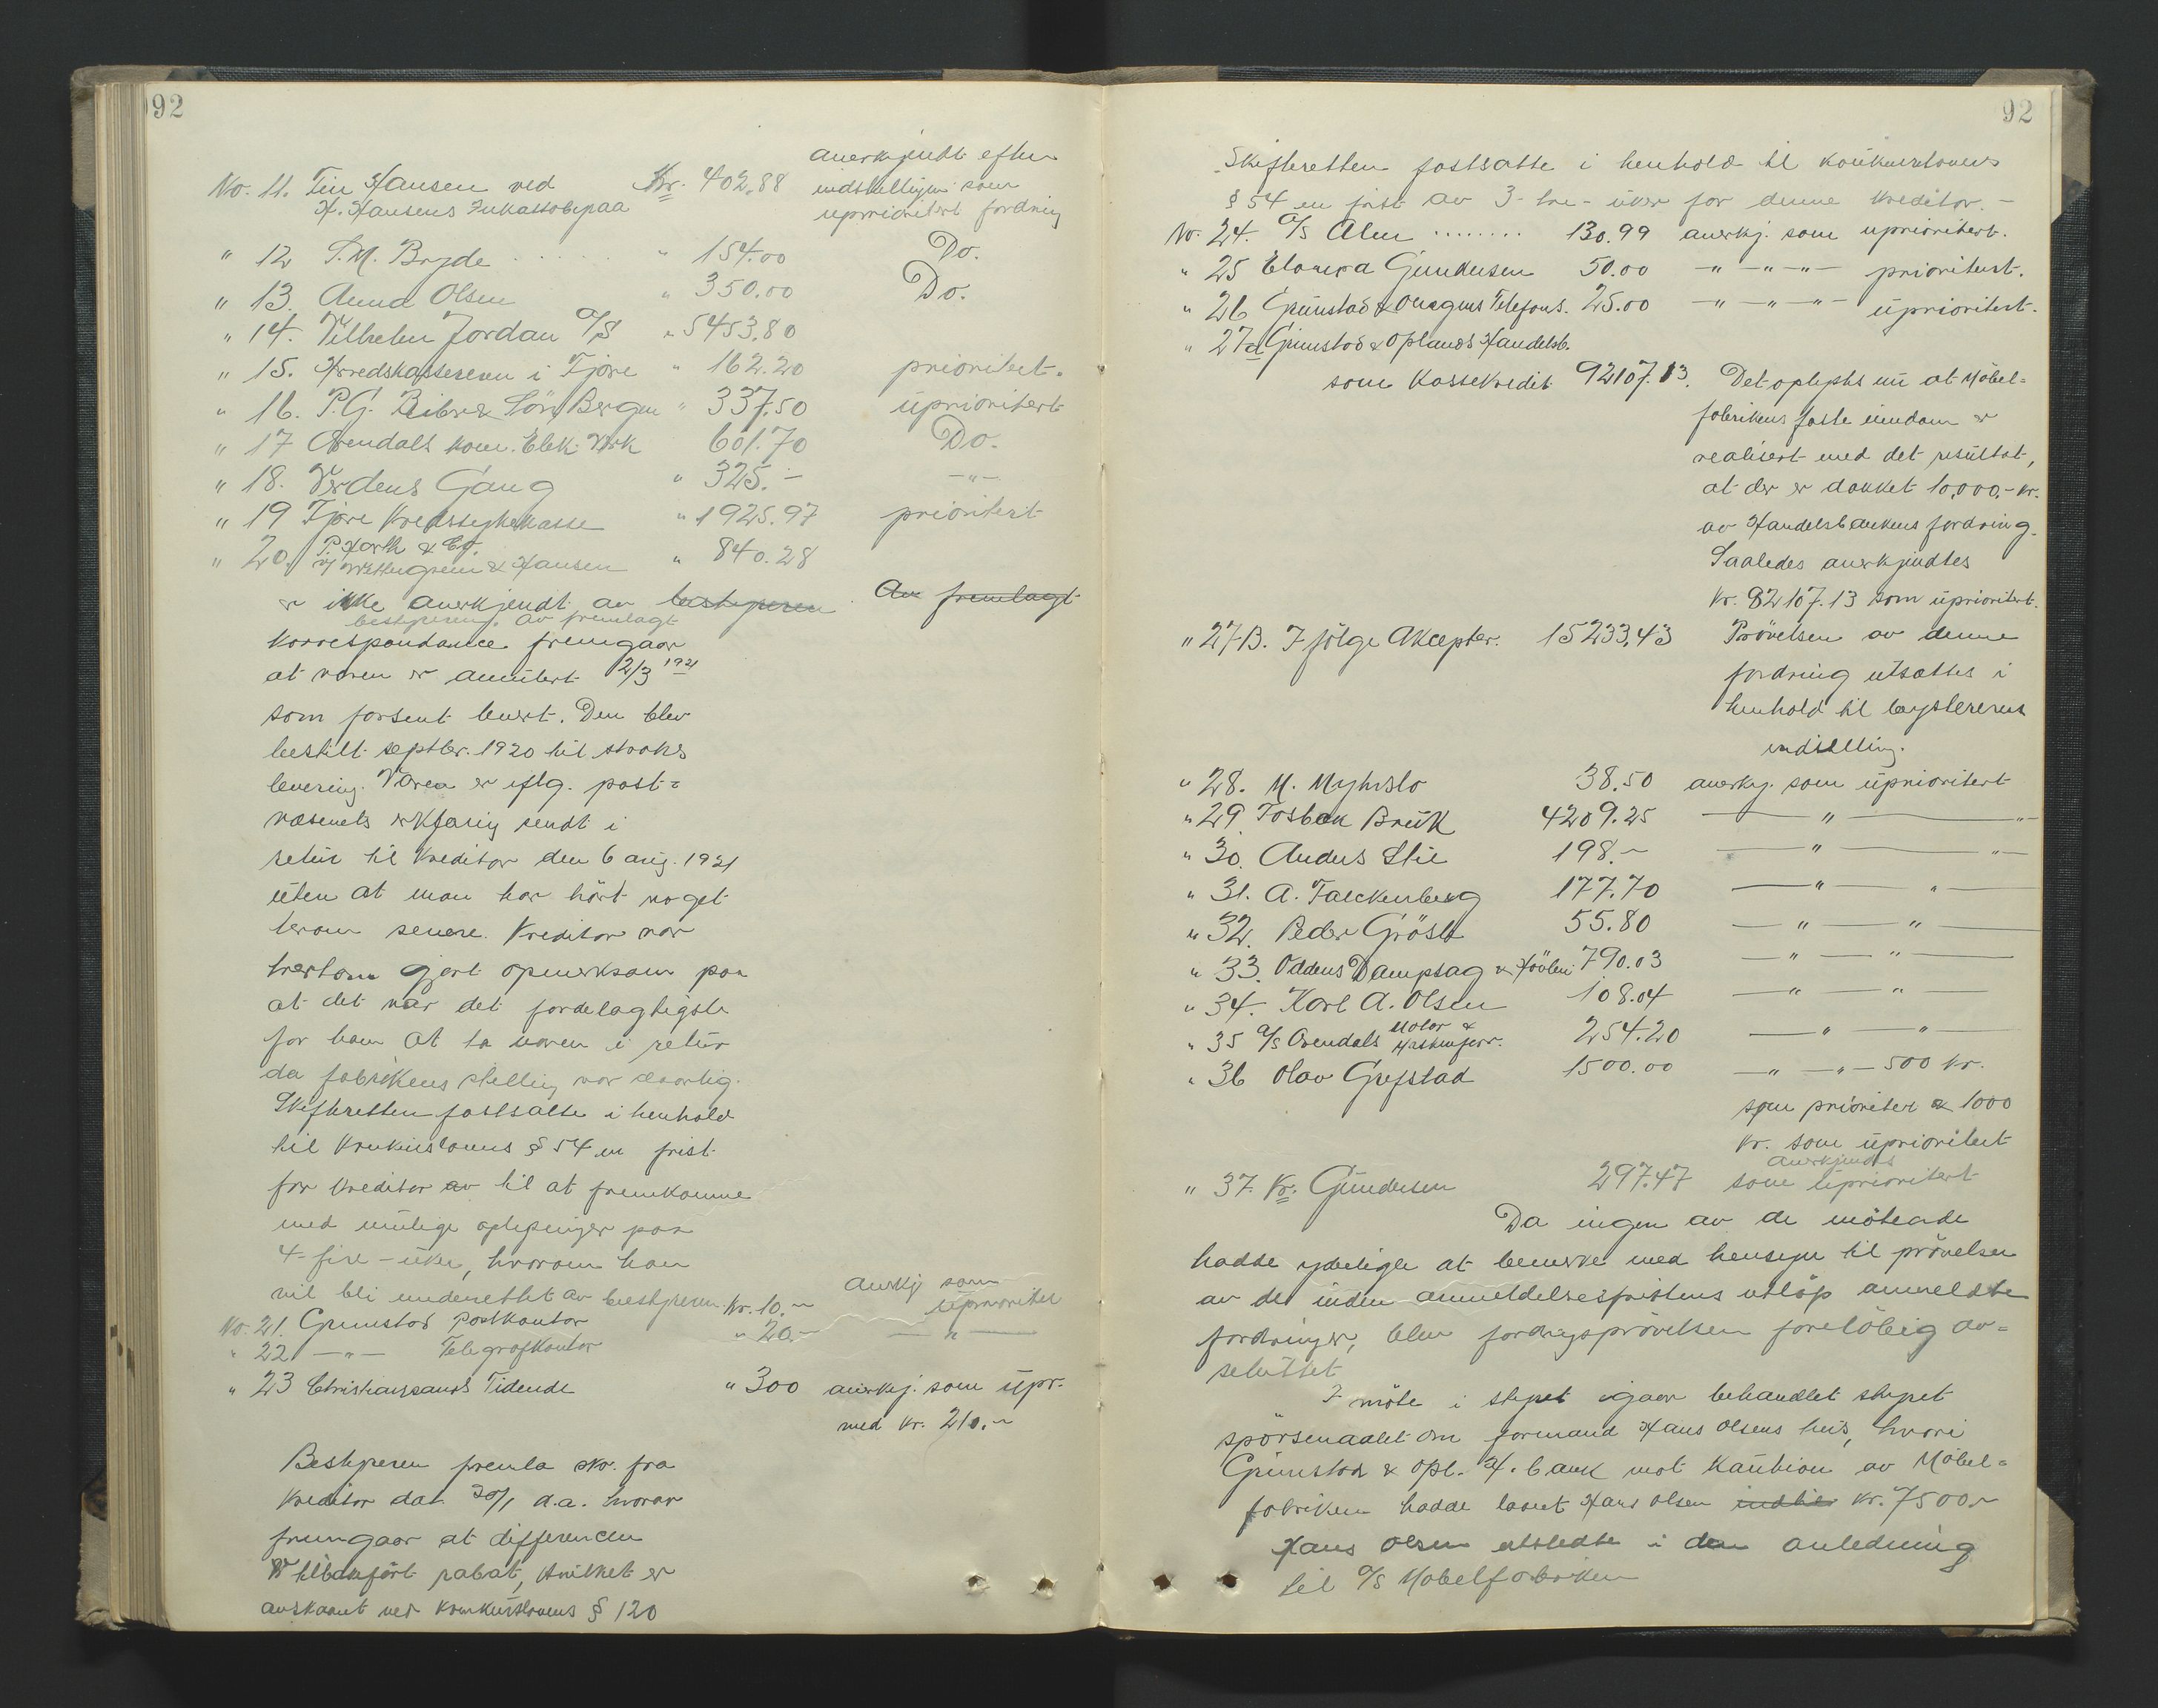 92
anerkjendt efter
No. 11. Tin Hansen ved Kr. 402,88 indstillingen som
H. Hansens Inkassobyraa uprioritert fordring
" 12 S.M. Bryde ..... " 154.00 Do.
" 13. Anna Olsen " 350.00 Do.
" 14. Vilhelm Jordan A/S " 5453,80
" 15. Herredskassereren i Fjære " 162.20 prioritert.
" 16. P.G. Rieber & Søn, Bergen " 337,50 uprioritert
" 17 Arendals kom. Elek. Verk 601.70 Do.
" 18. Verdens Gang " 325.- -"-
" 19 Fjære Kredssykekasse " 1925.97 prioritert
" 20. P. Harth & Co.
v/ & Hansen " 840.28
er ikke anerkjendt av bestyreren. Av fremlagt
bestyreren. Av fremlagt
korrespondance fremgaar
at varen er anullert 2/3 1921
som forsent levert. Den blev
bestilt septbr. 1920 til straks
levering. Varen er iflg. post=
væsenets erklæring sendt i
retur til kreditor den 6 aug. 1921
uten at man har hört noget
derom senere. Kreditor var
tvertom gjort opmerksom paa
at det var det fordelagtigste
for ham at ta varen i retur
da fabrikens stilling var daarlig.
Skifteretten fastsatte i henhold
til Konkurslovens § 54 en frist
for kreditor av til at fremkomme
med mulige oplysninger paa
4-fire-uker, hvorom han
vil bli underrettet av bestyreren.
No. 21. Grimstad Postkontor Kr. 10.- anerkj. som uprioritert
" 22 -"- Telegrafkontor " 20.- -"-
" 23 Christianssands Tidende " 300 anerkj. som upr.
med kr. 210.-
Bestyreren fremla skr. fra
kreditor dat. 20/1 d.a. hvorav
fremgaar at differencen
er tilbakeført rabat, hvilket er
avskaaret ved konkurslovens § 120
92
Skifteretten fastsatte i henhold til konkurslovens
§ 54 en frist av 3-tre-uker for denne kreditor.-
No. 24. A/S Alm ........ 130.99 anerkj. som uprioritert.
" 25 Elovisa Gundersen 50.00 -"-"-"- prioritert.
" 26 Grimstad & Omegns Telefons. 25.00 -"-"-"- uprioritert.
" 27a Grimstad & Oplands Handelsb.
som Kassekredit 92107.13. Det oplystes nu at Möbel=
fabrikens faste eiendom er
realisert med det resultat,
at der er dækket 10,000.- kr.
av Handelsbankens fordring.
Saaledes anerkjendtes
kr. 82107.13 som uprioritert.
" 27B. Ifölge Aksepter. 15233,43 Prövelsen av denne
fordring utsættes i
henhold til bestyrerens
indstilling.
" 28. M. Myhrslo 38.50 anerkj. som uprioritert
" 29 Fosbæk Bruk 4209.25 -"-"-
" 30. Anders Stie 198.- -"-"-
" 31. A. Falckenberg 177.70 -"-"-
" 32. Peder Gröslo 55.80 -"-"-
" 33. Oddens Dampsag & Hövleri 790.03 -"-"-
" 34. Karl A. Olsen 108.04 -"-"-
" 35 A/S Arendals Motor & Maskinforr. 254.20 -"-"-
" 36 Olav Grefstad 1500.00 -"-"- 500 kr.
som prioritert & 1000
kr. som uprioritert
anerkjendt
" 37. Kr. Gundersen 297.47 som uprioritert
Da ingen av de mötende
hadde yderligere at bemerke med hensyn til prövelsen
av de inden anmeldelsesfristens utlöp anmeldte
fordringer, blev fordringsprövelsen forelöbig av=
sluttet
I möte i styret igaar behandlet styret
spörsmaalet om formand Hans Olsens hus, hvori
Grimstad & Opl. H. bank mot kaution av Möbel=
fabriken hadde laant Hans Olsen indtil kr. 7500.-
Hans Olsen utstedte i den anledning
til A/S Möbelfabriken